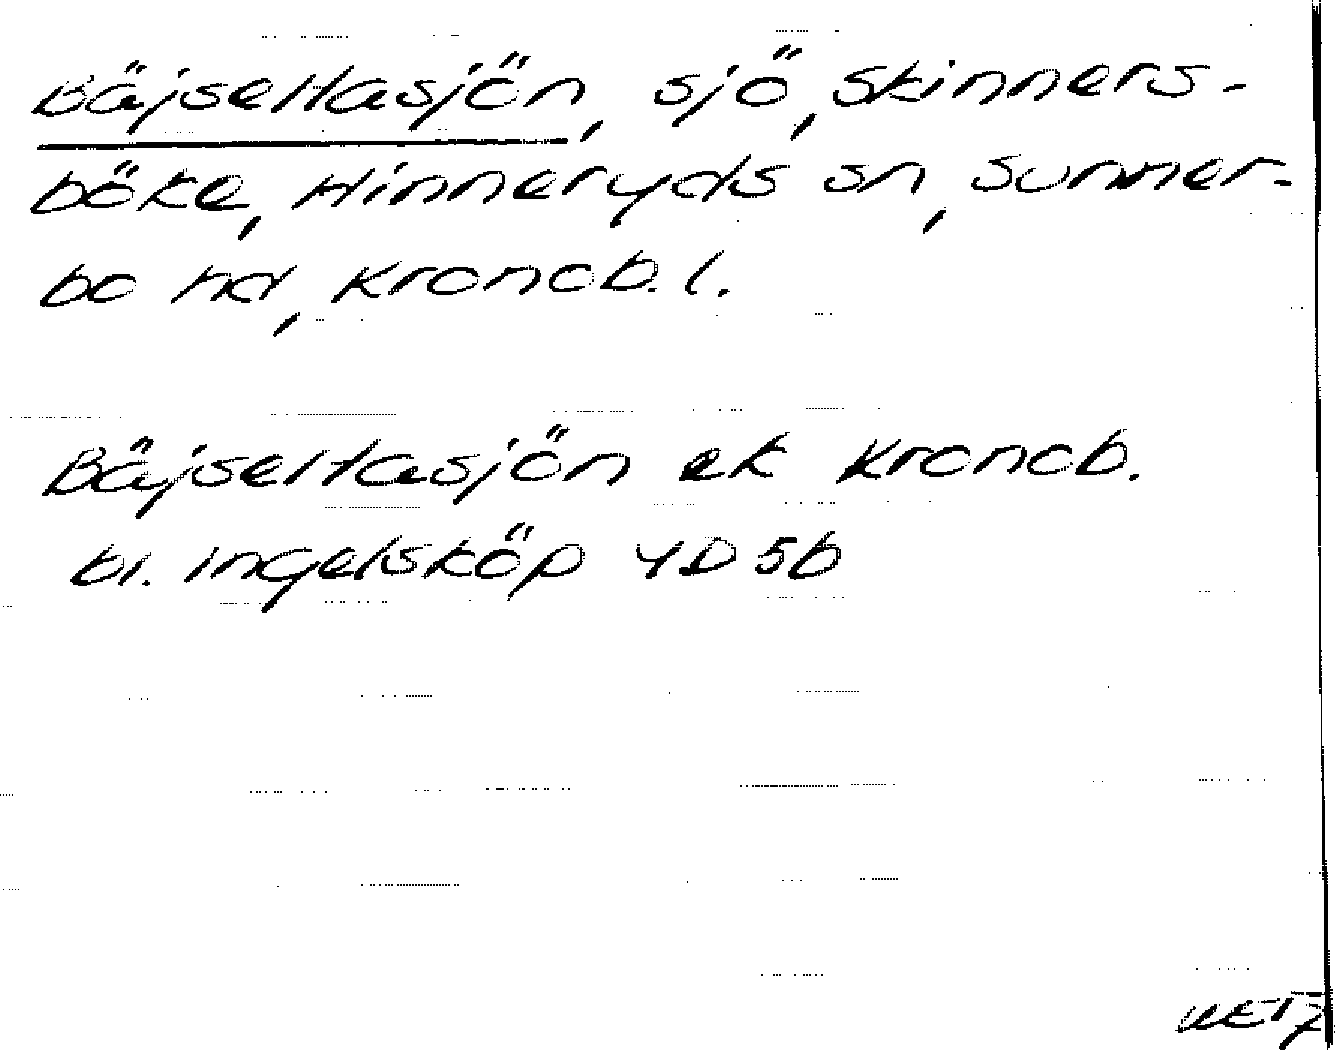 Bäjseltasjön, sjö, Skinners-
böke, Hinneryds sn, Sunner-
bo hd, Kronob. l.
Bäjseltasjön ek Kronob.
bl. Ingelsköp 4D 5b